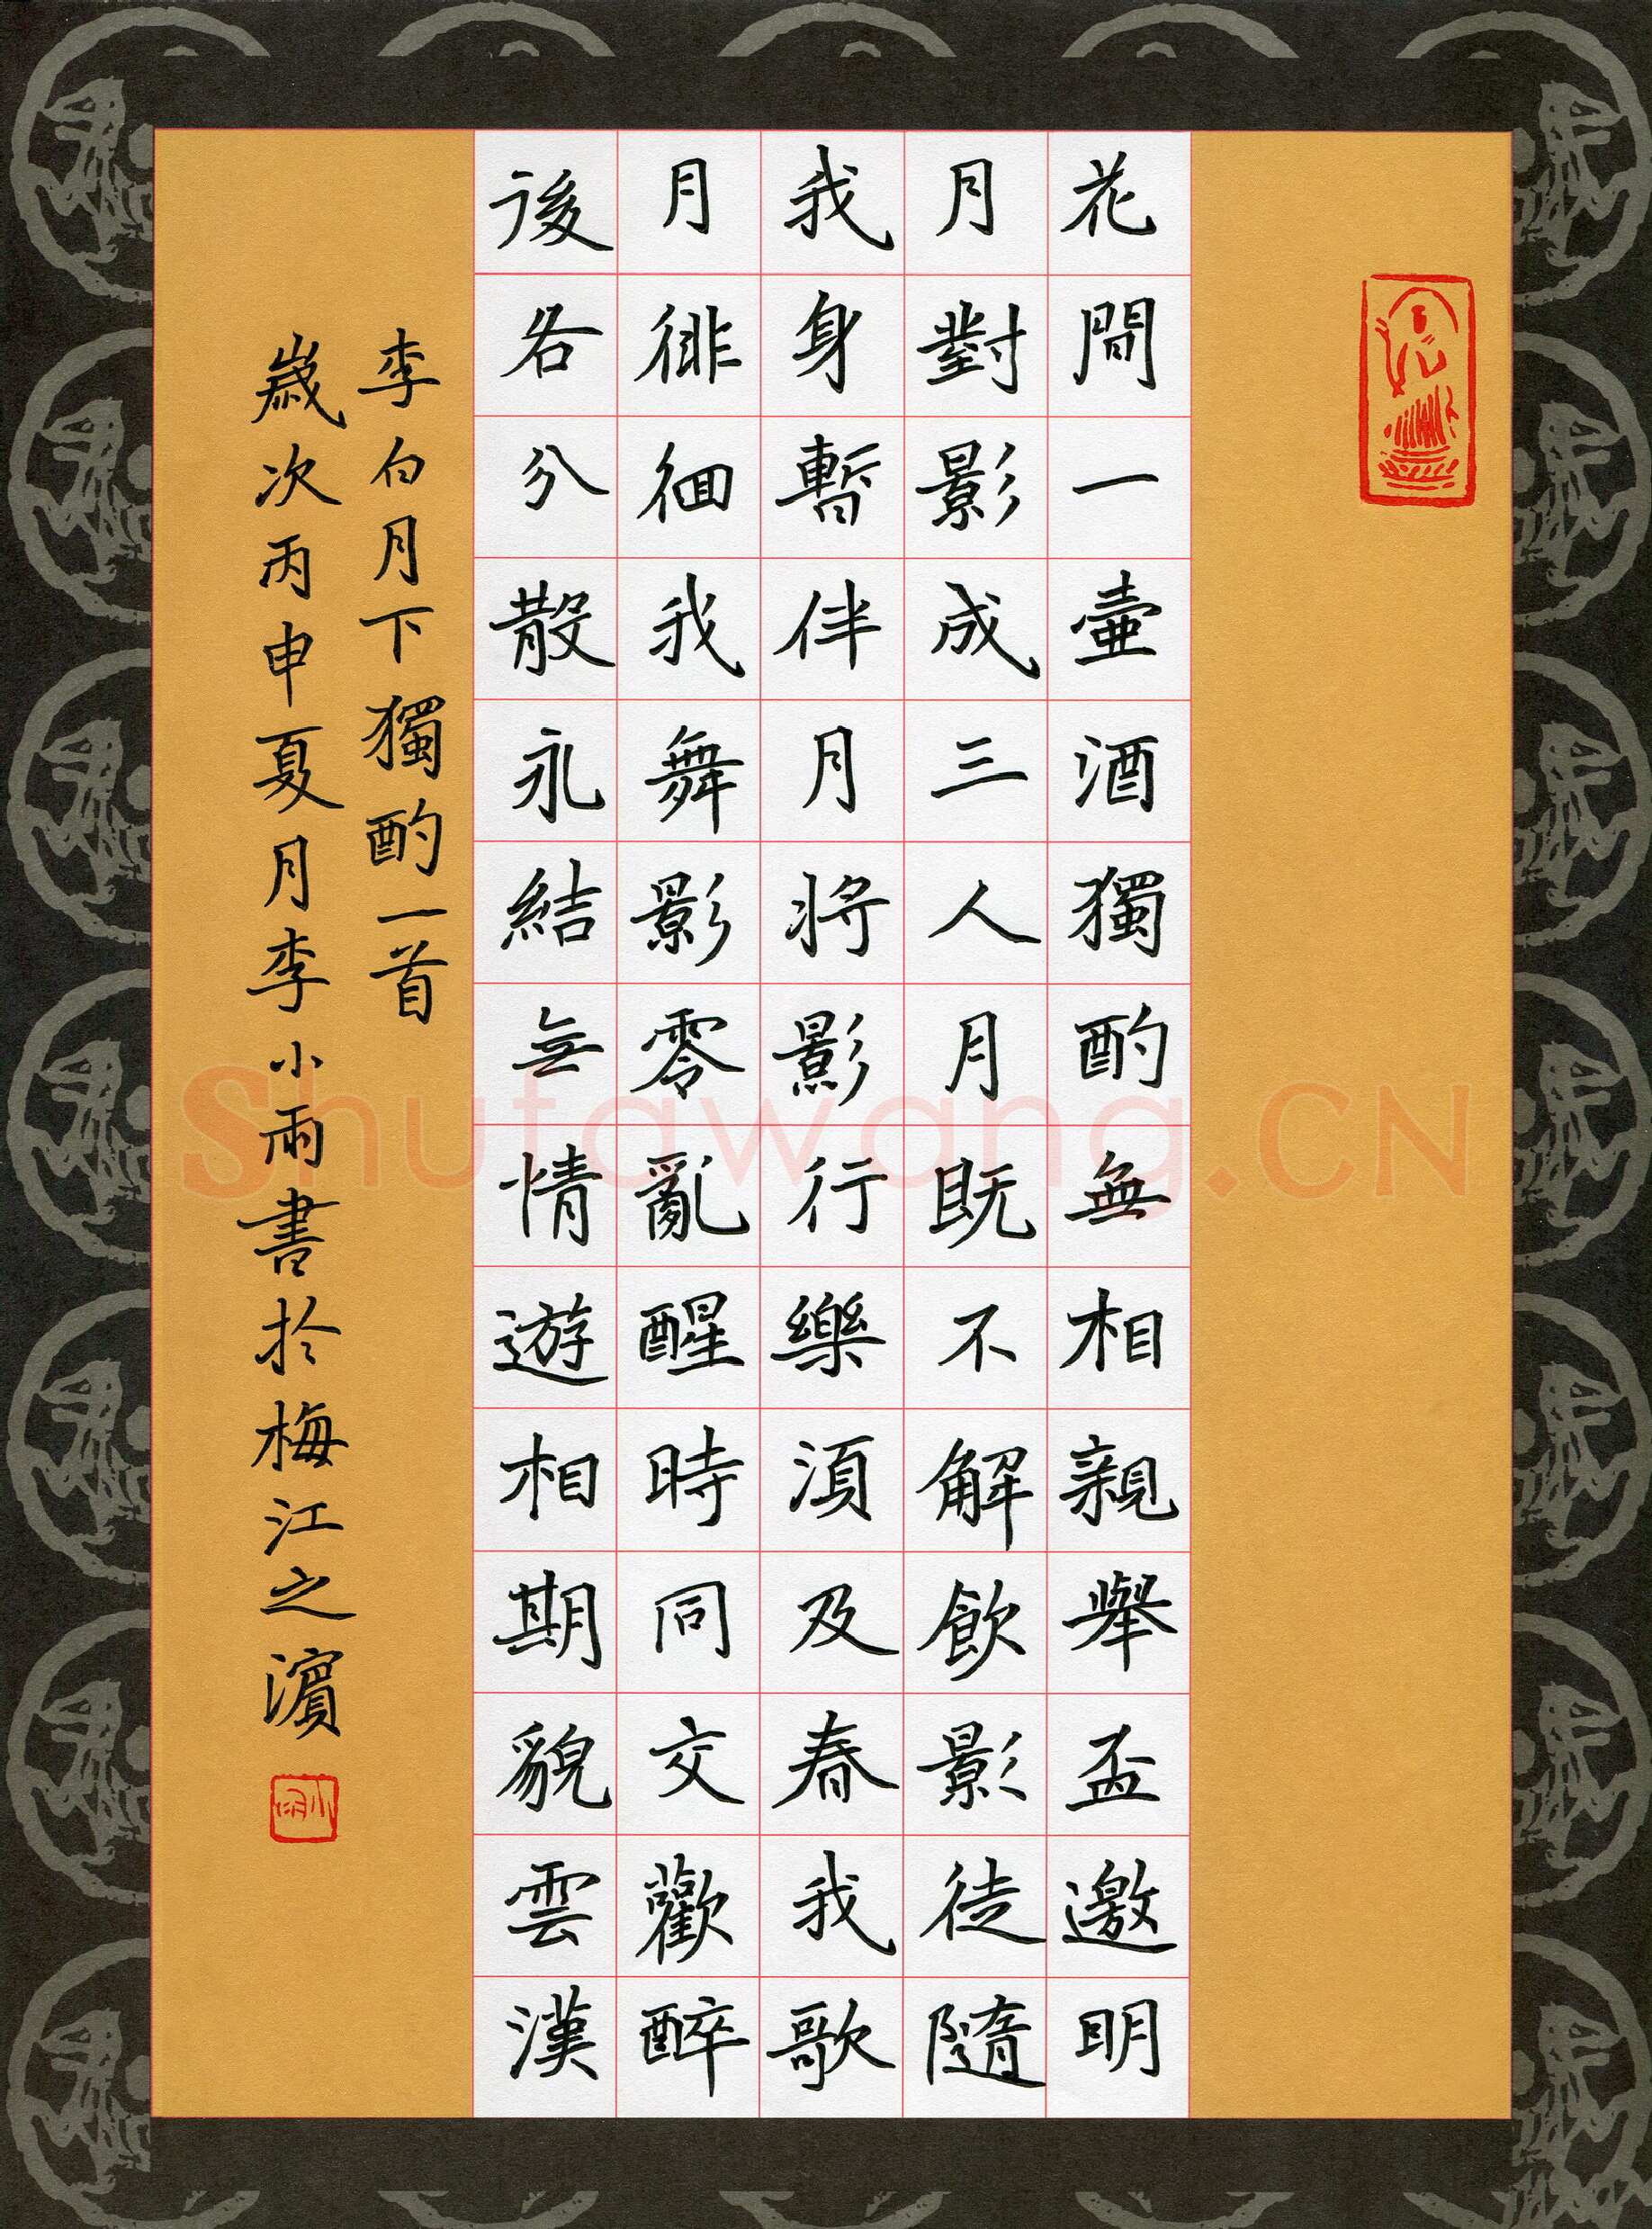 花間一壷酒獨酌無相親舉盃邀明
月對影成三人月既不解飲影徒隨
我身暫伴月將影行樂須及春我歌
月徘徊我舞影零亂醒時同交歡醉
後各分散永結無情遊相期貌雲漢
李白月下獨酌一首
歲次丙申夏月李小雨書於梅江之濱
Shufawang.CN